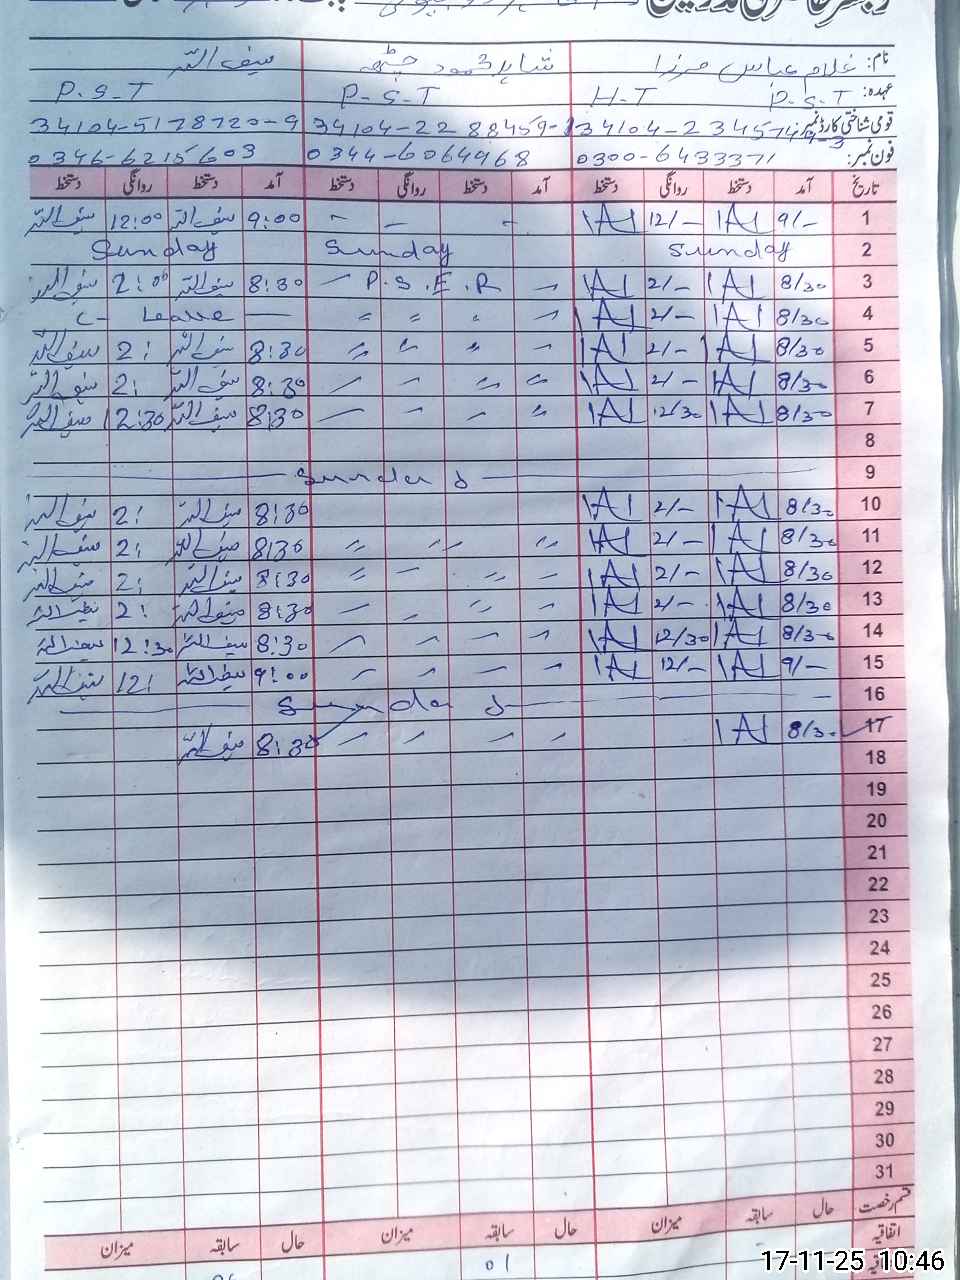 نام: غلام عباس مرزا شاہد محمود چٹھہ سیف اللہ
عہدہ: P.S.T H-T P-S-T P.S-T
قومی شناختی کارڈ نمبر: 34104-5178720-9
فون نمبر: 0300-6433371 0344-6064968 0346-6215603
تاریخ آمد دستخط روانگی دستخط آمد دستخط روانگی دستخط آمد دستخط روانگی دستخط
1 9/- 12/- - - - 9:00 سیف اللہ 12:00 سیف اللہ
2 Sunday Sunday Sunday
3 8/30 2/- P.S.E.R 8:30 سیف اللہ 2:00 سیف اللہ
4 8/30 2/- 〃 〃 〃 〃 C- Leave
5 8/30 2/- 〃 〃 〃 8:30 سیف اللہ 2: سیف اللہ
6 8/30 2/- 〃 〃 — — 8:30 سیف اللہ 2: سیف اللہ
7 8/30 12/30 〃 — — — 8:30 سیف اللہ 12:30 سیف اللہ
8
9 Sunday
10 8/30 2/- 8:30 سیف اللہ 2: سیف اللہ
11 8/30 2/- 〃 〃 〃 8:30 سیف اللہ 2: سیف اللہ
12 8/30 2/- — 〃 — 〃 8:30 سیف اللہ 2: سیف اللہ
13 8/30 2/- — 〃 — — 8:30 سیف اللہ 2: سیف اللہ
14 8/30 12/30 — — — — 8:30 سیف اللہ 12:30 سیف اللہ
15 9/- 12/- — — — — 9:00 سیف اللہ 12: سیف اللہ
16 Sunday
17 8/30 — — — — 8:30 سیف اللہ
18
19
20
21
22
23
24
25
26
27
28
29
30
31
قسم رخصت حال سابقہ میزان حال سابقہ میزان حال سابقہ میزان
اتفاقیہ
01
17-11-25 10:46